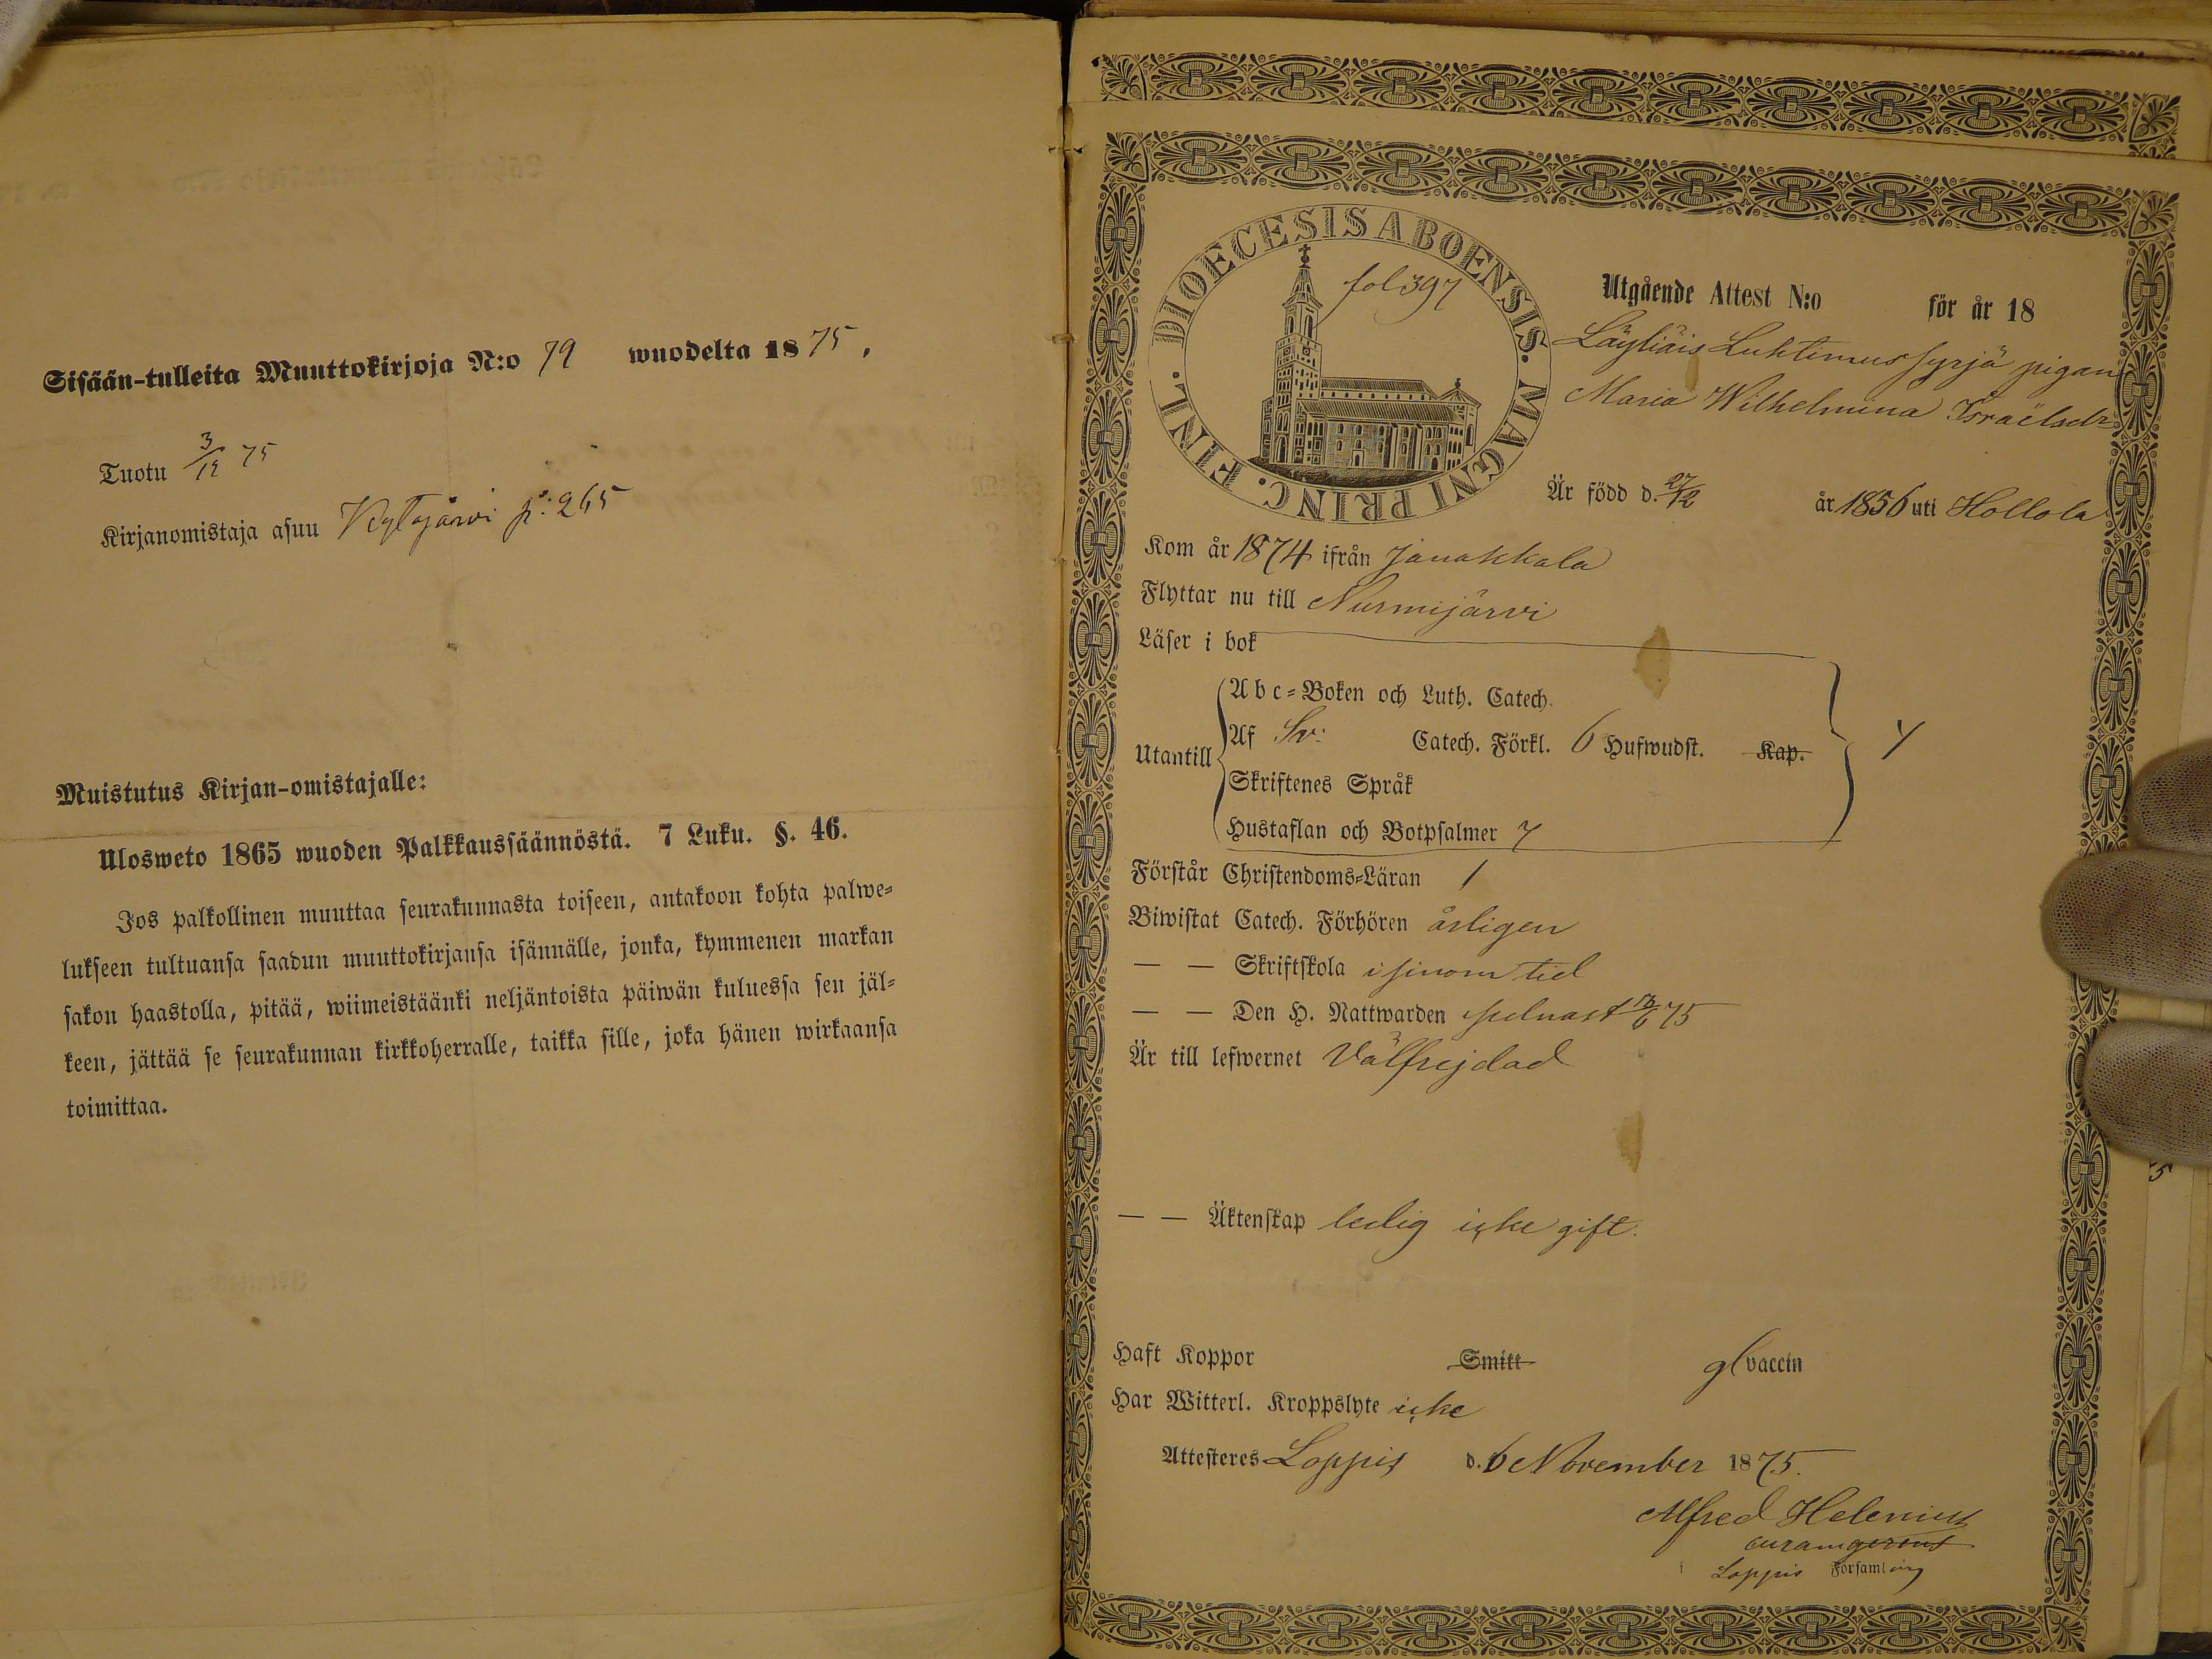 Sisään-tulleita Muuttokirjoja N:o 79 wuodelta 1875.
Tuotu 3/12 75
Kirjanomistaja asuu Kytäjärvi p: 265
Muistutus Kirjan-omistajalle:
Ulosweto 1865 wuoden Palkkaussäännöstä. 7 Luku. §. 46.
Jos palkollinen muuttaa seurakunnasta toiseen, antakoon kohta palwe-
lukseen tultuansa saadun muuttokirjansa isännälle, jonka, kymmenen markan
sakon haastolla, pitää, wiimeistäänki neljäntoista päiwän kuluessa sen jäl-
keen, jättää se seurakunnan kirkkoherralle, taikka sille, joka hänen wirkaansa
toimittaa.
DIOECESIS ABOENSIS. MAGNI PRINC. FINL.
fol 397
Utgående Attest N:o för år 18
Läyliäis Luhtimussyrjä pigan
Maria Wilhelmina Israëlsdr
Är född d. 27/12 år 1856 uti Hollola
Kom år 1874 ifrån Janakkala
Flyttar nu till Nurmijärvi
Läser i bok
Utantill
Abc-Boken och Luth. Catech.
Af Sv: Catech. Förkl. 6 Hufwudst. Kap.
Skriftenes Språk
Hustaflan och Botpsalmer
Förstår Christendoms-Läran 1
Biwistat Catech. Förhören årligen
— — Skriftskola i sinom tid
— — Den H. Nattwarden sednast 13/6 75
Är till lefwernet Välfrejdad
— — Äktenskap ledig icke gift.
Haft Koppor Smitt gl vaccin
Har Witterl. Kroppslyte icke
Attesteres Loppis d. 6 November 1875.
Alfred Helenius
curam gerens
i Loppis Församling